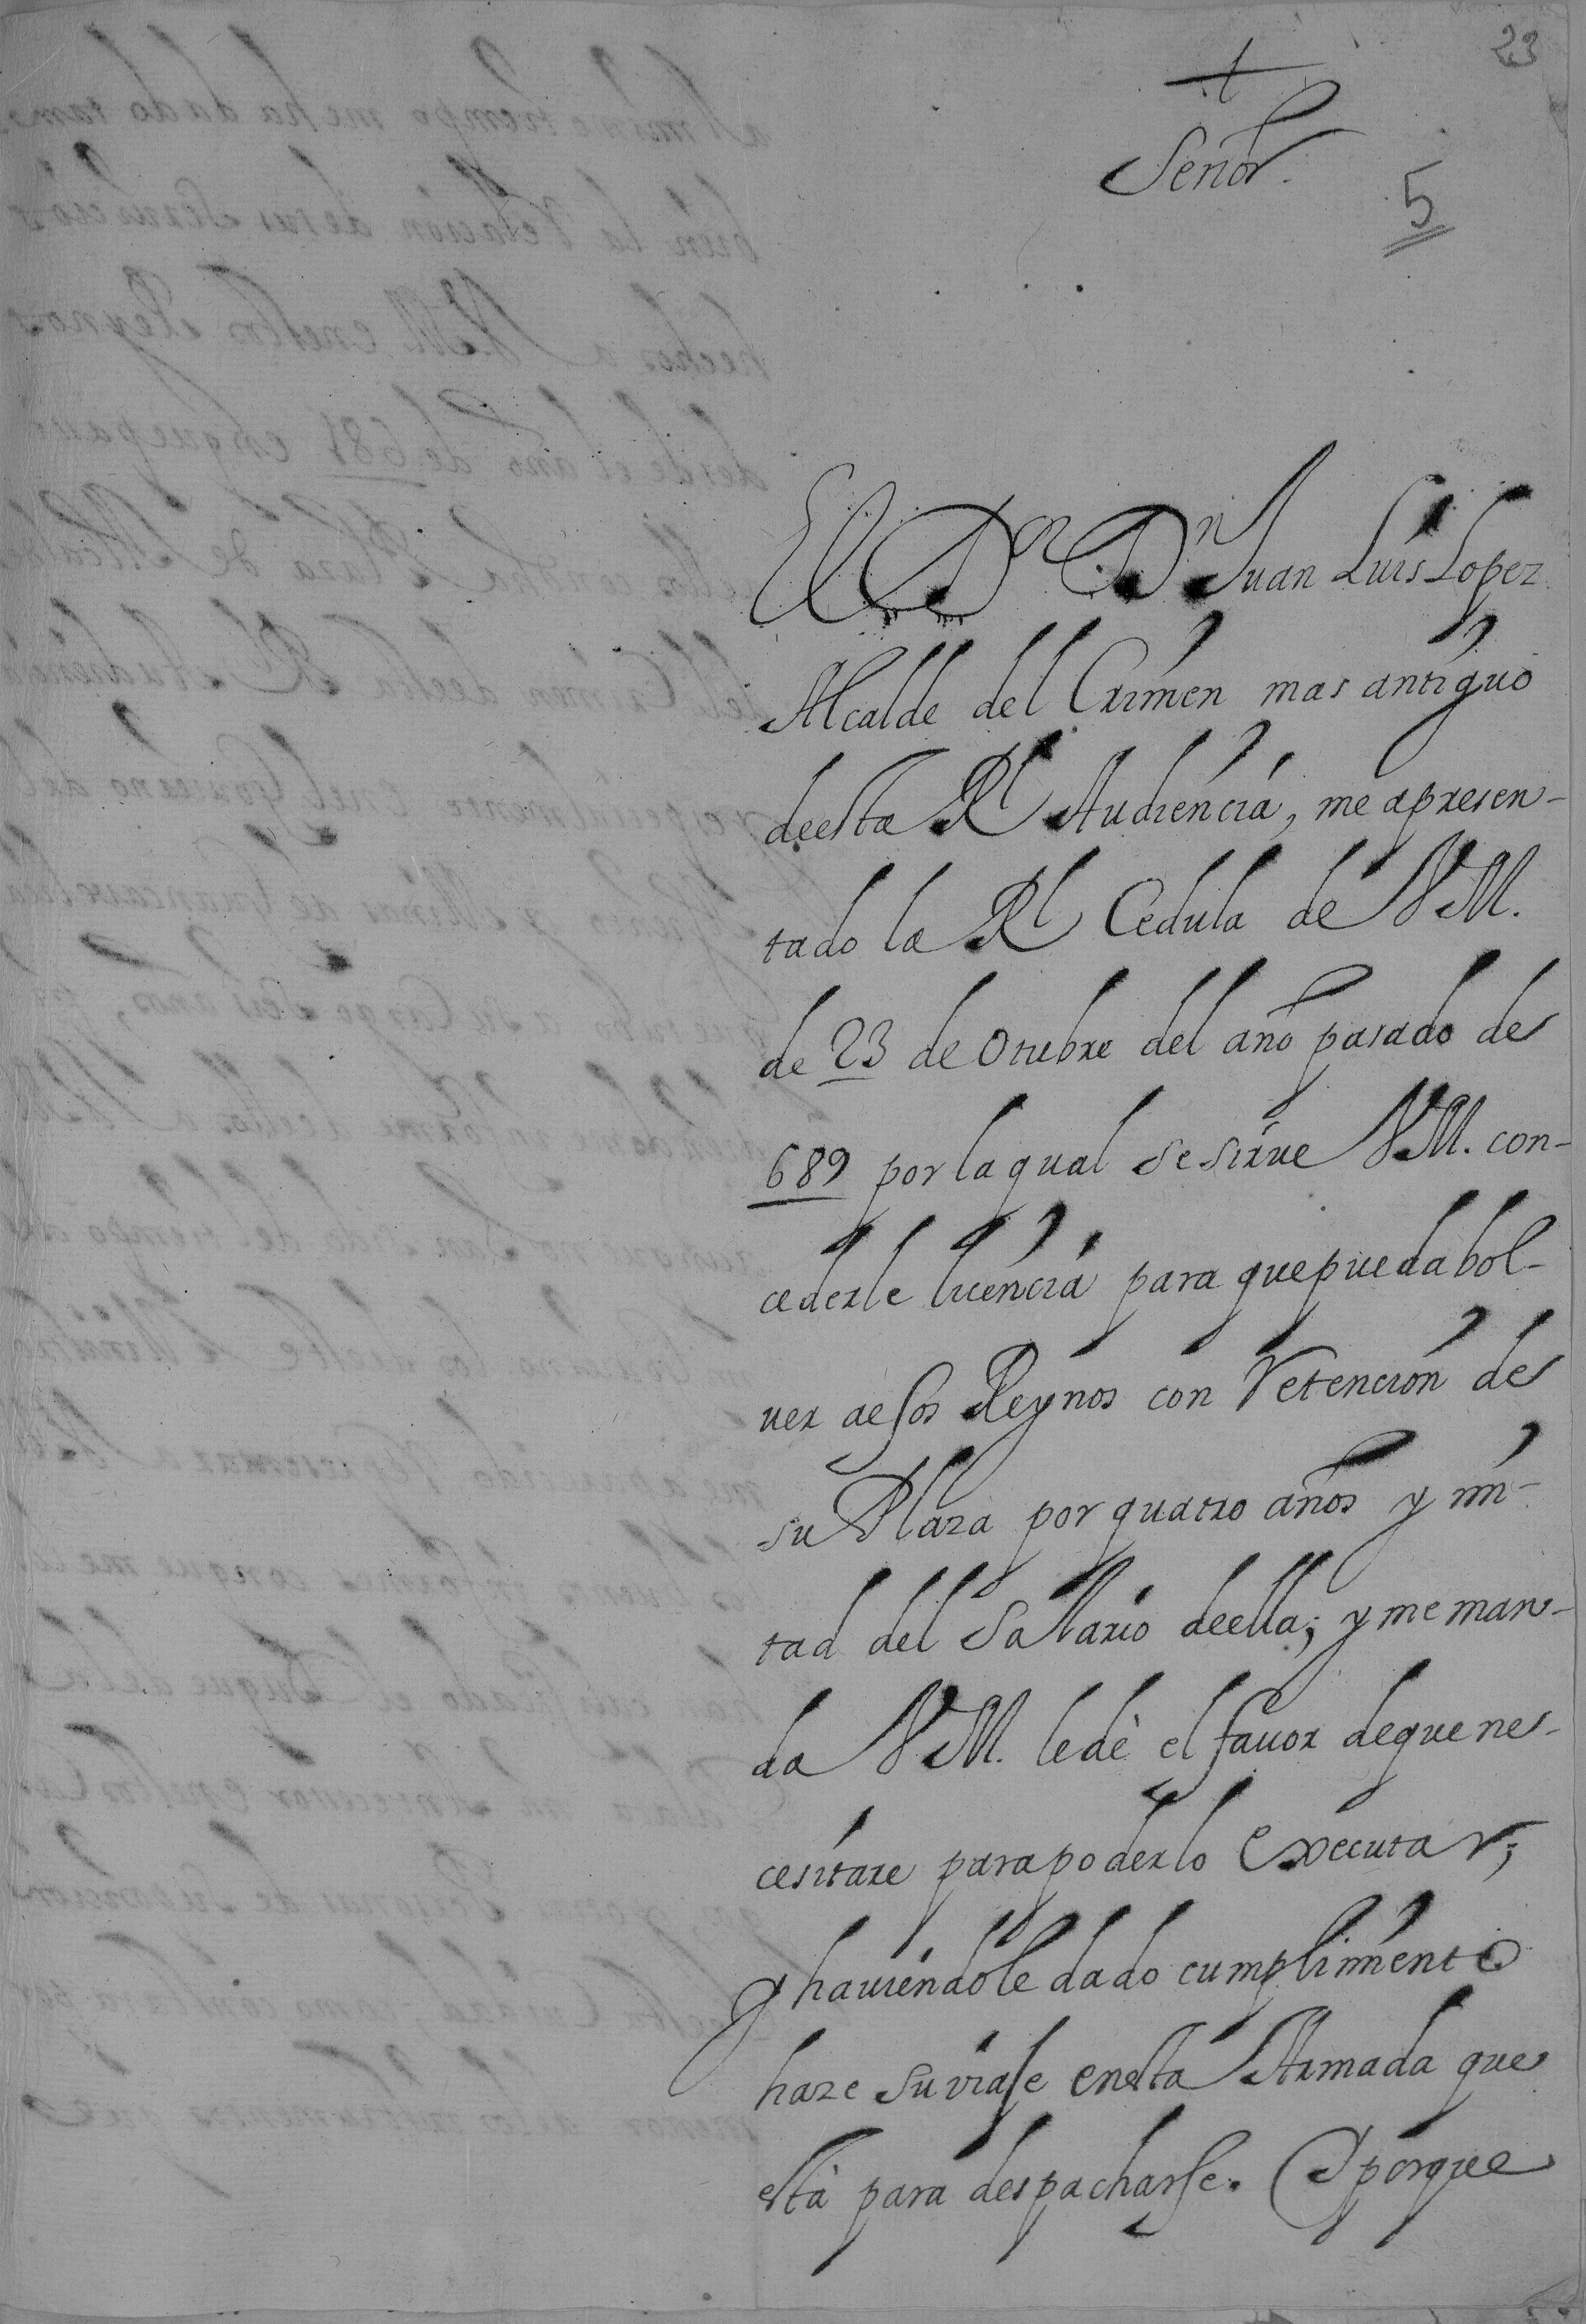 23
+
Señor.
5
El Dor Dn Juan Luis Lopez
Alcalde del Crimen mas antiguo
deesta Rl Audiencia, me apresen-
tado la Rl Cedula de VM.
de 23 de Otubre del año pasado de
689 por la qual se sirue VM. con-
cederle licencia para que pueda bol-
uer a esos Reynos con Retencion de
su Plaza por quatro años y mi-
tad del Salario deella; y me man-
da VM. le dè el fauor de que nes-
cesitare para poderlo executar;
y hauiendole dado cumplimento
haze su viaje enesta Armada que
està para despacharse. Y porque